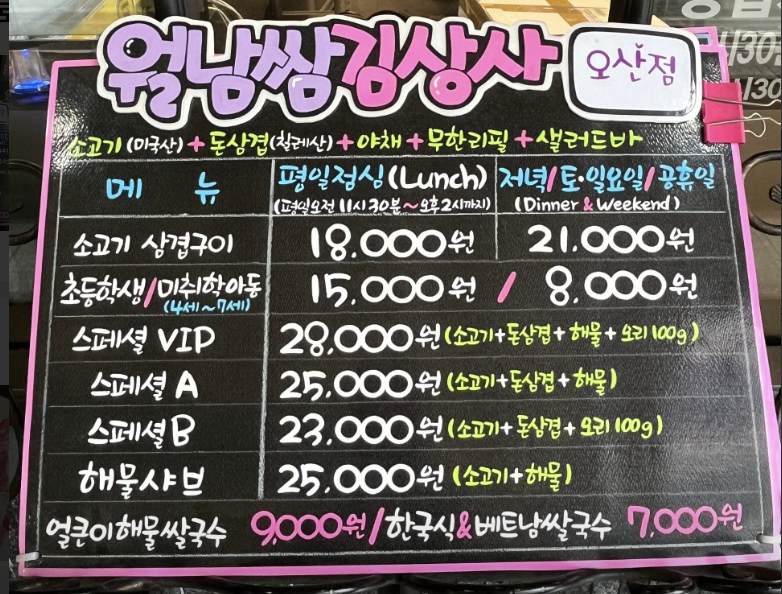 월남쌈김상사 오산점
소고기(미국산)+돈삼겹(칠레산)+야채+무한리필+샐러드바
메 뉴 평일점심(Lunch) 저녁/토·일요일/공휴일
(평일오전 11시 30분~오후2시까지) (Dinner & Weekend)
소고기 삼겹구이 18.000원 21.000원
초등학생/미취학아동 15.000원 / 8.000원
(4세~7세)
스페셜 VIP 28.000원(소고기+돈삼겹+해물+오리 100g)
스페셜 A 25.000원(소고기+돈삼겹+해물)
스페셜 B 23.000원(소고기+돈삼겹+오리 100g)
해물샤브 25.000원(소고기+해물)
얼큰이해물쌀국수 9,000원/한국식&베트남쌀국수 7,000원